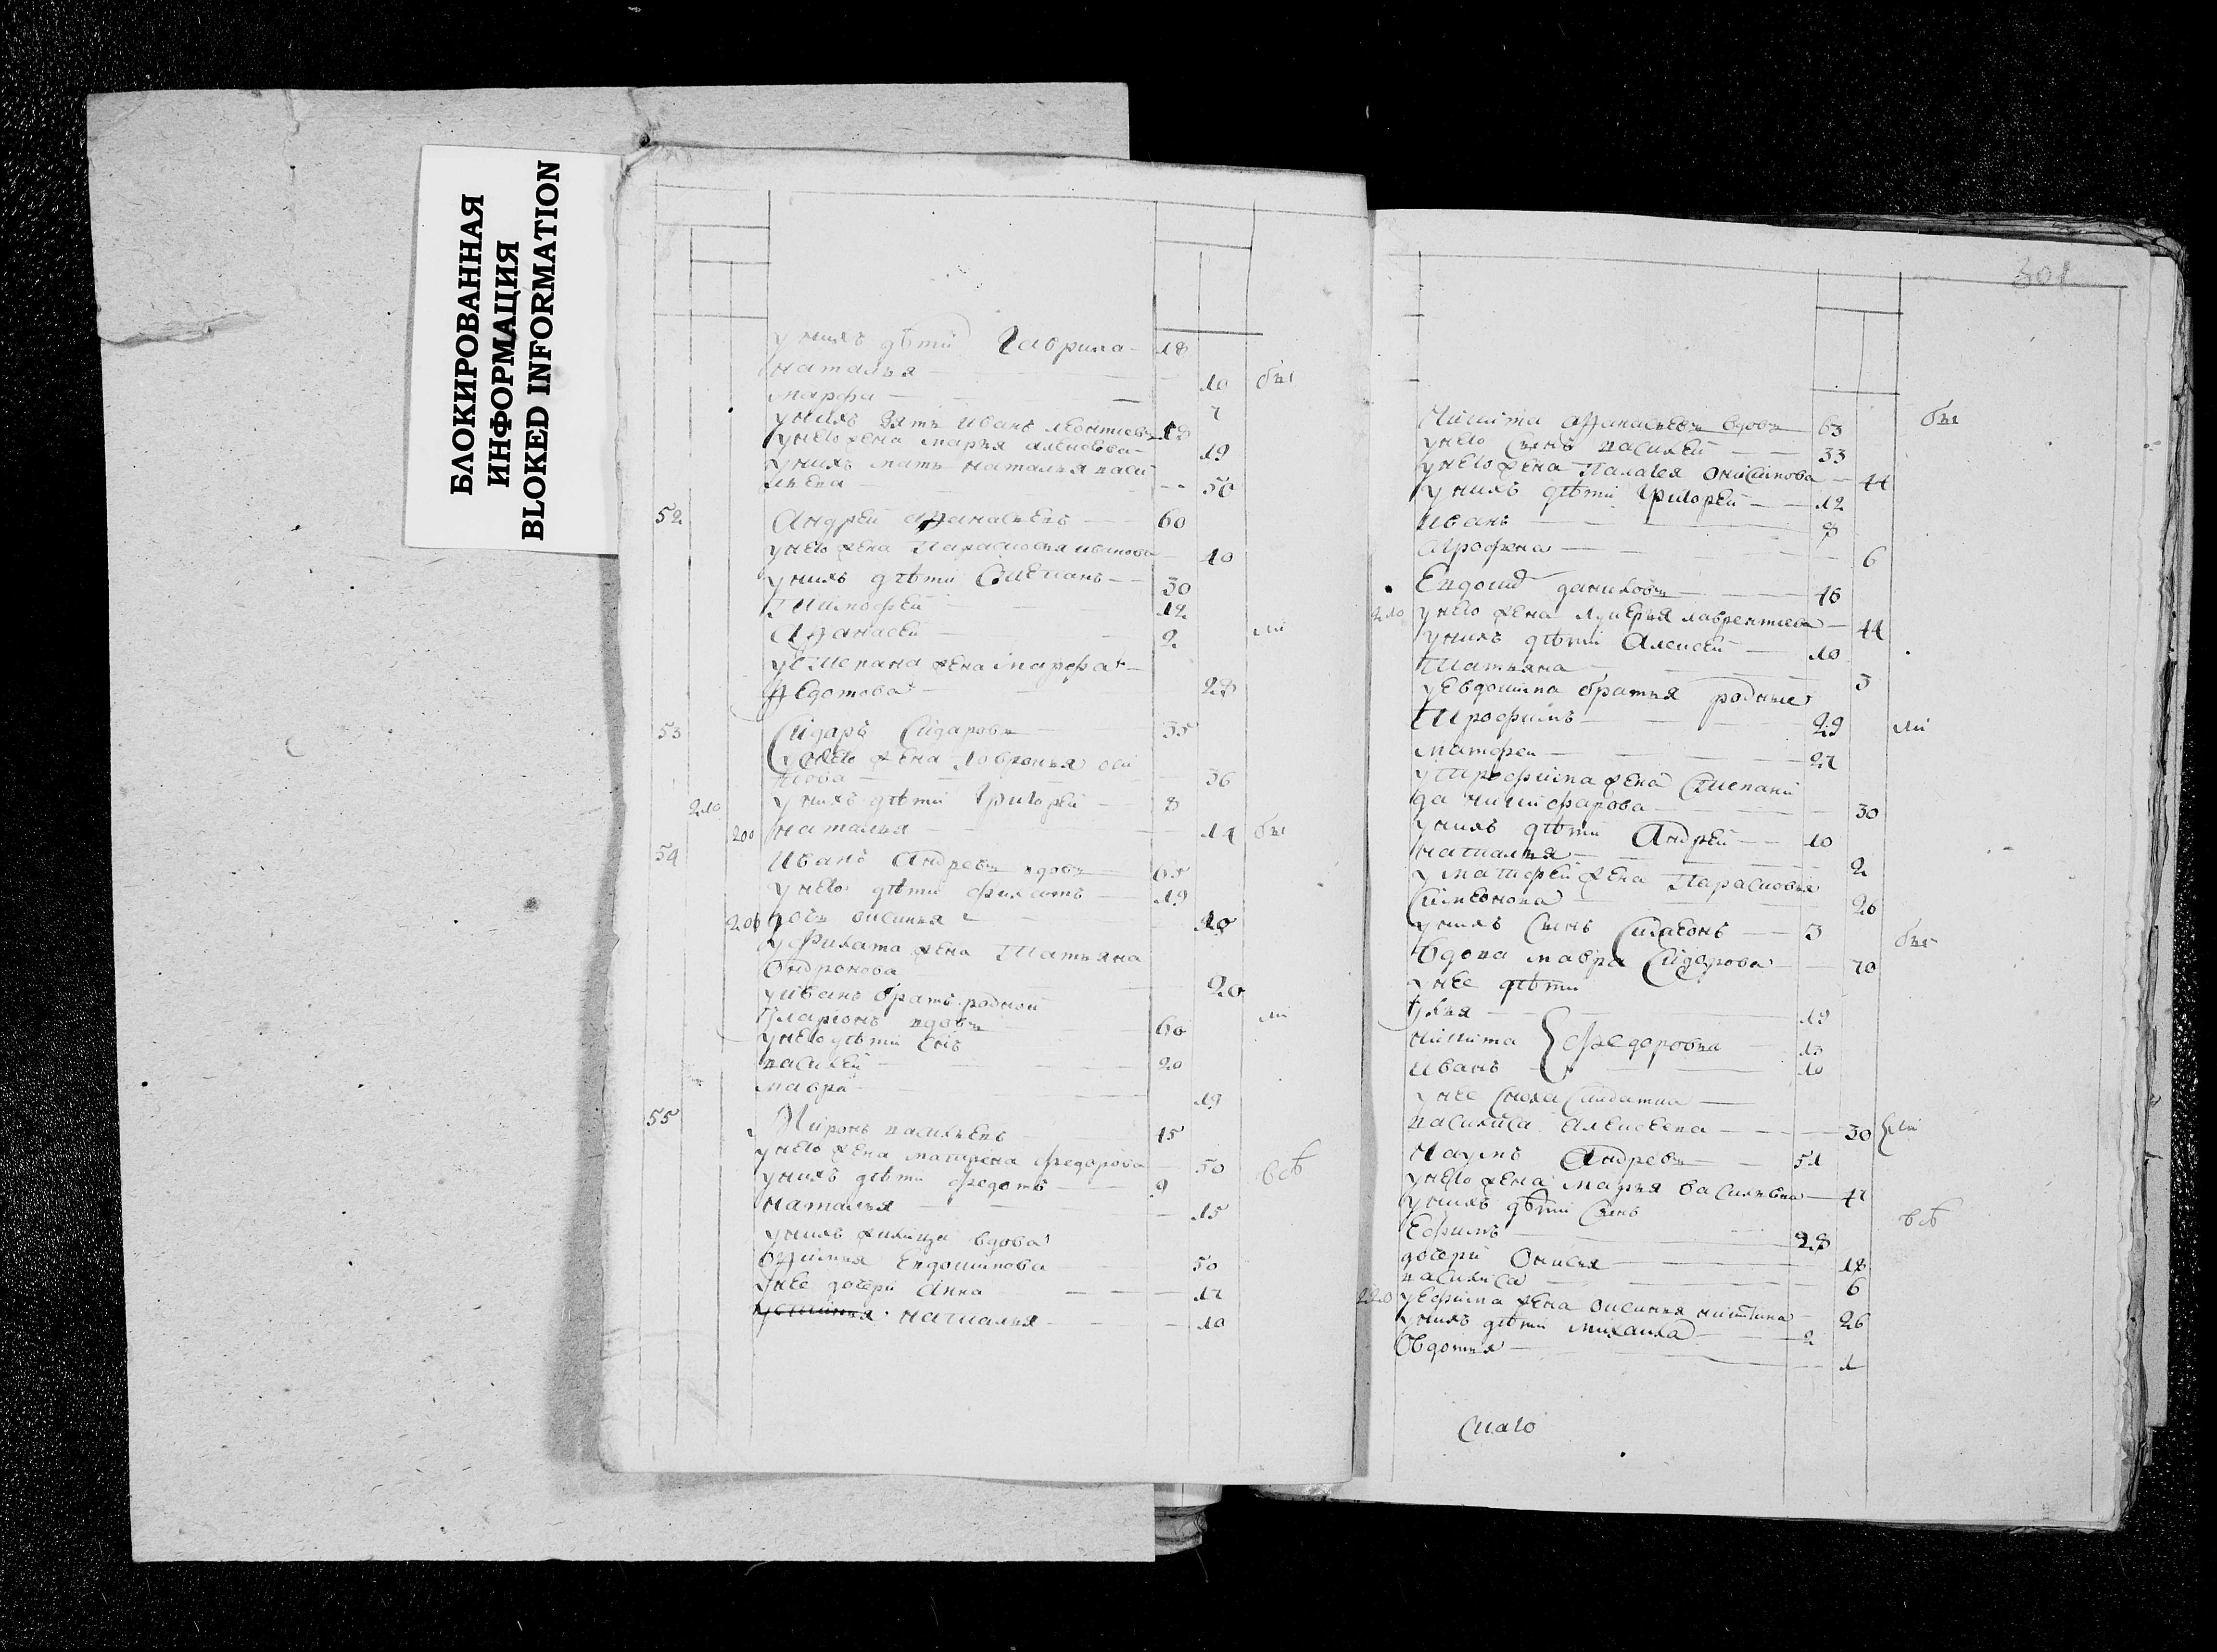 БЛОКИРОВАННАЯ
ИНФОРМАЦИЯ
BLOKED INFORMATION
у нихъ дѣти Гаврила 18
наталья 10 бы
марфа 7
у нихъ зять иванъ леонтиевъ 18
у него жена марья алексеева 19
у нихъ мать наталья васи
льева 50
52 Андрей афанасьевъ 60
у него жена Парасковья 40
у нихъ дѣти Степанъ 30
Тимофей 12
Афанасей 2 ли
у Степана жена марфа
Федотова 28
53 Сидаръ Сидаровъ 35
у него жена
36
210 у нихъ дѣти Григорей 8
200 наталья 14 бы
54 Иванъ Андревъ вдовъ 65
у него дѣти филатъ 19
дочь оксинья
у филата жена Татьяна
Ондронова 20
у ивана братъ родной
Иларионъ вдовъ 60 ли
у него дѣти снъ
василей 20
мавра 19
55 Миронъ васильевъ 45
у него жена матрена федорова 50 всѣ
у нихъ дѣти федотъ 9
наталья 15
у нихъ жилица вдова
Евдокимова 50
у нее дочери Анна 17
наталья 10
301
Никита афанасьевъ вдовъ 63 бы
у него сынъ василей 33
у него жена Палагея Онисимова 44
у нихъ дѣти Григорей 12
иванъ 8
агрофена 6
Евдоким даниловъ 46
210 у него жена лукерья лаврентиева 44
у нихъ дѣти Алексей 10
Татьяна 3
у Евдокима братья родные
Трофимъ 29 ли
матфей 27
у Трофима жена Степани
да никифарова 30
у нихъ дѣти Андрей 10
наталья 2
у матфея жена Парасковья
Симеонова 26
у нихъ сынъ 3
вдова мавра Сидорова 70 бы
у нее дѣти
Илья 19
никита } федоровы 13
иванъ 10
у нее сноха салдатка
василиса алексеева 30 ли
Наумъ Андревъ 51
у него жена марья васильева 47
у нихъ дѣти сынъ всѣ
Ефимъ 28
дочери Онисья 18
василиса 6
220 у ефима жена оксинья никитина 26
у нихъ дѣти михаила 2
Овдотья 1